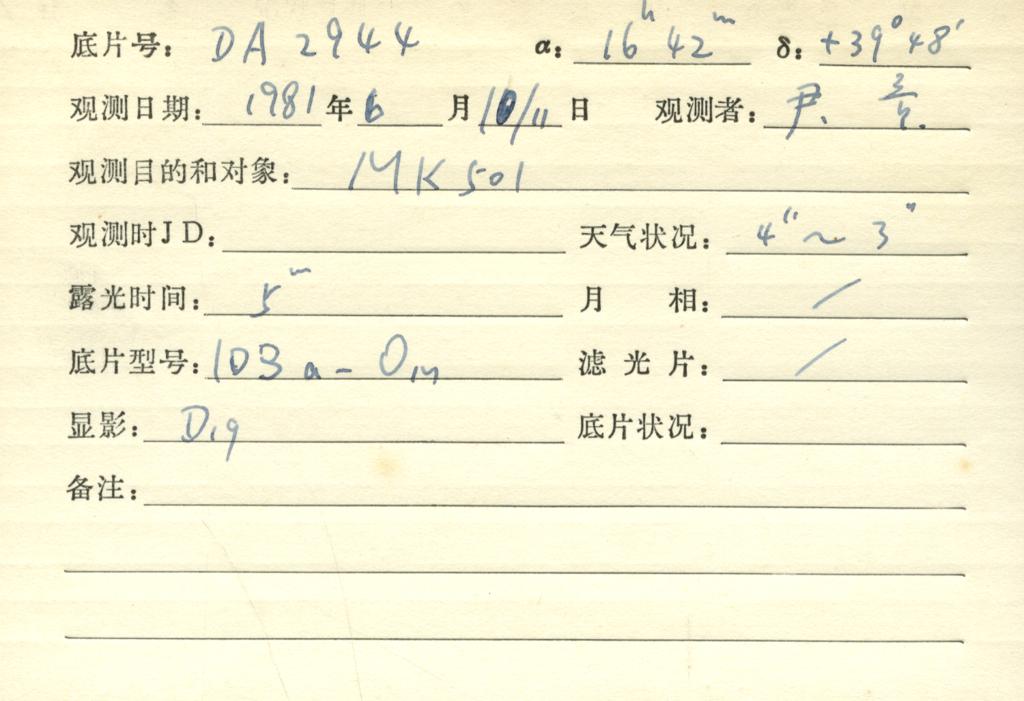 底片号: DA 2944 α: 16ʰ 42ᵐ δ: +39°48′
观测日期: 1981 年 6 月 10/11 日 观测者: 尹.
观测目的和对象: MK 501
观测时JD: 天气状况: 4" ~ 3"
露光时间: 5ᵐ 月 相: /
底片型号: 103a-O 滤光片: /
显影: D19 底片状况:
备注: